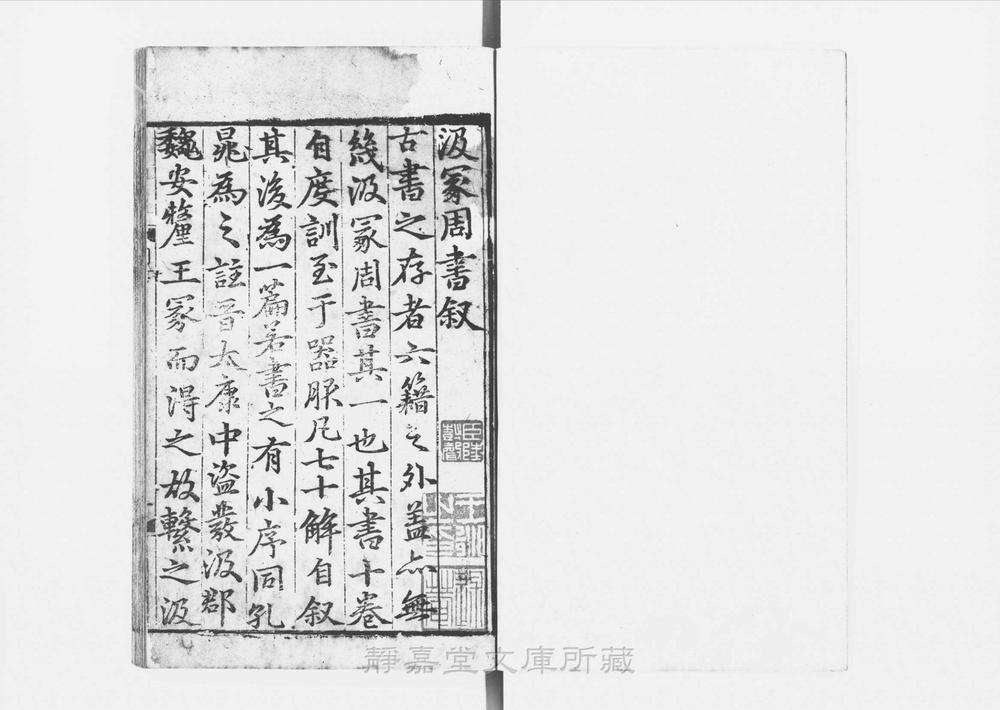 汲冢周書叙
古書之存者六籍之外盖亦無
幾汲冢周書其一也其書十卷
自度訓至于器服凡七十解自叙
其後為一篇若書之有小序同孔
晁為之註晉太康中盗發汲郡
魏安釐王冢而得之故繫之汲
靜嘉堂文庫所藏